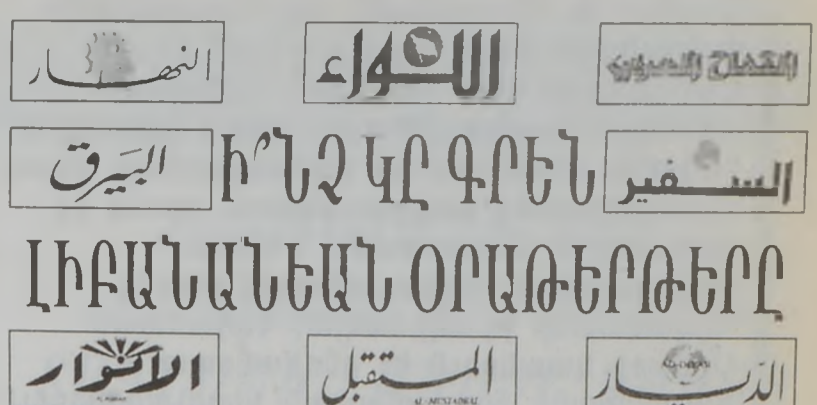 النهار
اللواء
البيرق
Ի՞ՆՉ ԿԸ ԳՐԵՆ
السفير
ԼԻԲԱՆԱՆԵԱՆ ՕՐԱԹԵՐԹԵՐԸ
الأنوار
المستقبل
AL-MUSTAQBAL
الديار